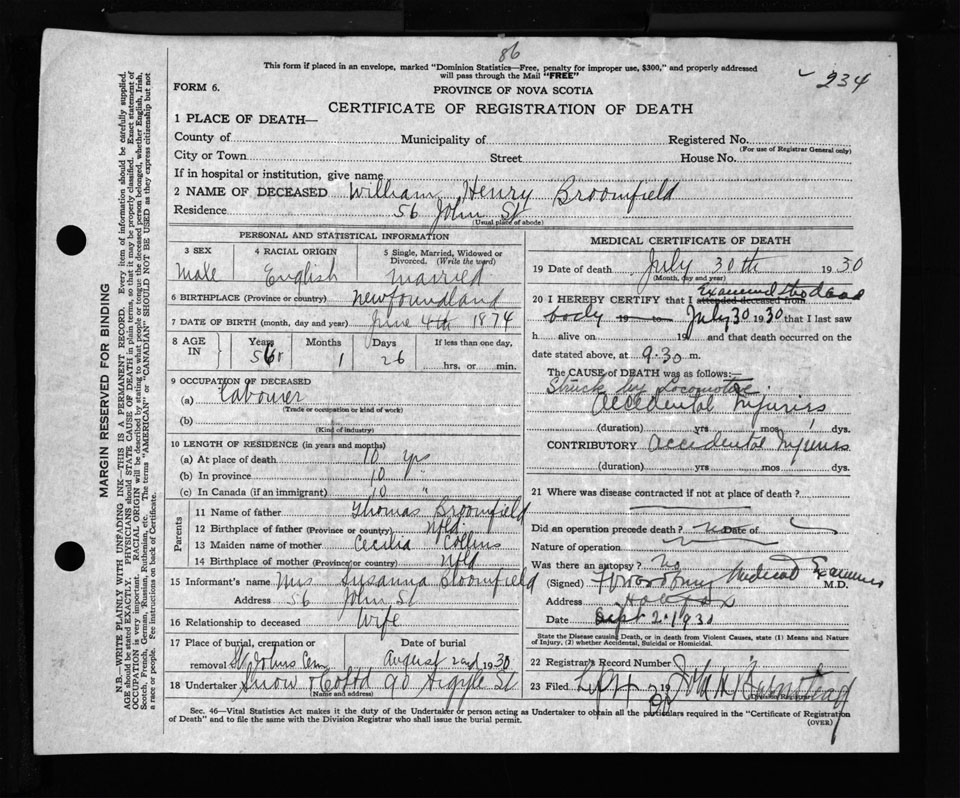 86
234
This form if placed in an envelope, marked "Dominion Statistics—Free, penalty for improper use, $300," and properly addressed
will pass through the Mail "FREE"
FORM 6.
PROVINCE OF NOVA SCOTIA
CERTIFICATE OF REGISTRATION OF DEATH
1 PLACE OF DEATH—
County of Municipality of Registered No.
(For use of Registrar General only)
City or Town Street House No.
If in hospital or institution, give name
2 NAME OF DECEASED William Henry Broomfield
Residence 56 John St
(Usual place of abode)
PERSONAL AND STATISTICAL INFORMATION
3 SEX 4 RACIAL ORIGIN 5 Single, Married, Widowed or
Divorced. (Write the word)
Male English Married
6 BIRTHPLACE (Province or country) Newfoundland
7 DATE OF BIRTH (month, day and year) June 4th 1874
8 AGE IN Years Months Days If less than one day,
56 1 26 hrs. or min.
9 OCCUPATION OF DECEASED
(a) Labourer
(Trade or occupation or kind of work)
(b)
(Kind of industry)
10 LENGTH OF RESIDENCE (in years and months)
(a) At place of death 10 yrs
(b) In province 10 "
(c) In Canada (if an immigrant) 10 "
Parents
11 Name of father Thomas Broomfield
12 Birthplace of father (Province or country) Nfld
13 Maiden name of mother Cecilia Collins
14 Birthplace of mother (Province or country) Nfld
15 Informant's name Mrs Susanna Bloomfield
Address 56 John St
16 Relationship to deceased Wife
17 Place of burial, cremation or Date of burial
removal St Johns Cem August 2nd 1930
18 Undertaker Snow & Co Ltd 90 Argyle St
(Name and address)
MEDICAL CERTIFICATE OF DEATH
19 Date of death July 30th 1930
(Month, day and year)
20 I HEREBY CERTIFY that I attended deceased from Examined the dead
body 19 to July 30 1930 that I last saw
h alive on 19 and that death occurred on the
date stated above, at 9.30 m.
The CAUSE OF DEATH was as follows:—
Struck by Locomotive
Accidental Injuries
(duration) yrs mos dys.
CONTRIBUTORY Accidental Injuries
(duration) yrs mos dys.
21 Where was disease contracted if not at place of death?
Did an operation precede death? no Date of
Nature of operation
Was there an autopsy? No
(Signed) Medical Examiner M.D.
Address Halifax
Date Sept 2 1930
State the Disease causing Death, or in death from Violent Causes, state (1) Means and Nature
of Injury, (2) whether Accidental, Suicidal or Homicidal.
22 Registrar's Record Number
23 Filed Sept 19 John
Sec. 46—Vital Statistics Act makes it the duty of the Undertaker or person acting as Undertaker to obtain all the particulars required in the "Certificate of Registration
of Death" and to file the same with the Division Registrar who shall issue the burial permit.
(OVER)
MARGIN RESERVED FOR BINDING
N.B.—WRITE PLAINLY WITH UNFADING INK—THIS IS A PERMANENT RECORD. Every item of information should be carefully supplied.
AGE should be stated EXACTLY. PHYSICIANS should STATE CAUSE OF DEATH in plain terms, so that it may be properly classified. Exact statement of
OCCUPATION is very important. RACIAL ORIGIN will be described by stating to what people or tongue the deceased person belonged, whether English, Irish,
Scotch, French, German, Russian, Ruthenian, etc. The terms "AMERICAN" or "CANADIAN" SHOULD NOT BE USED as they express citizenship but not
a race or people. Fee instructions on back of Certificate.